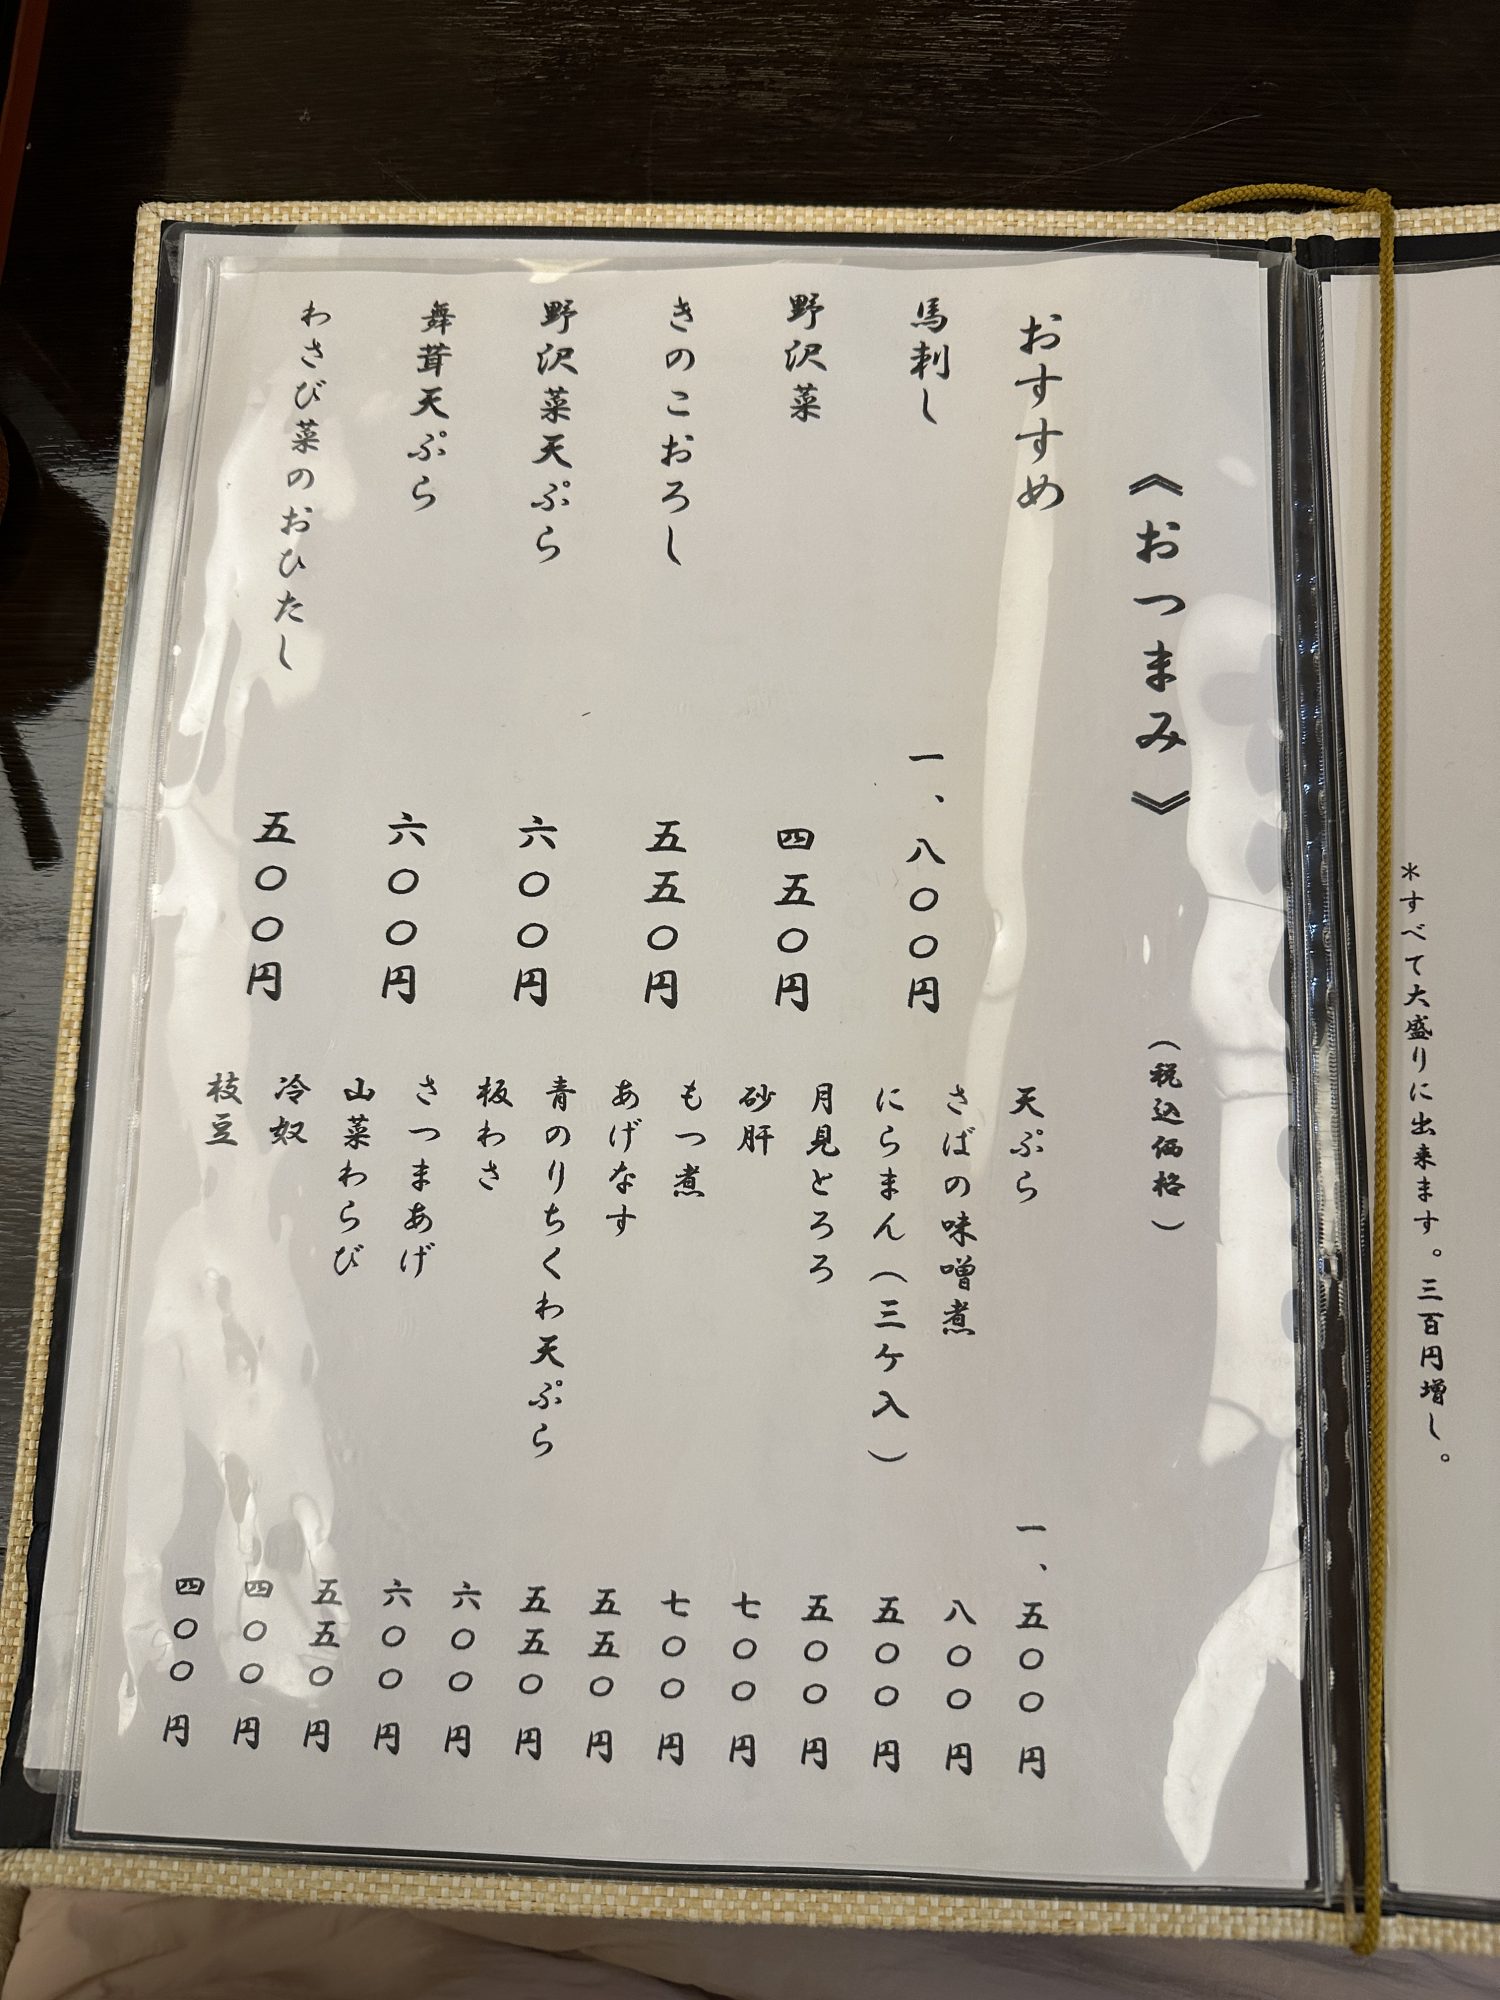 ＊すべて大盛りに出来ます。三百円増し。
《おつまみ》
（税込価格）
おすすめ
馬刺し 一、八〇〇円
野沢菜 四五〇円
きのこおろし 五五〇円
野沢菜天ぷら 六〇〇円
舞茸天ぷら 六〇〇円
わさび菜のおひたし 五〇〇円
天ぷら 一、五〇〇円
さばの味噌煮 八〇〇円
にらまん（三ケ入） 五〇〇円
月見とろろ 五〇〇円
砂肝 七〇〇円
もつ煮 七〇〇円
あげなす 五五〇円
青のりちくわ天ぷら 五五〇円
板わさ 六〇〇円
さつまあげ 六〇〇円
山菜わらび 五五〇円
冷奴 四〇〇円
枝豆 四〇〇円